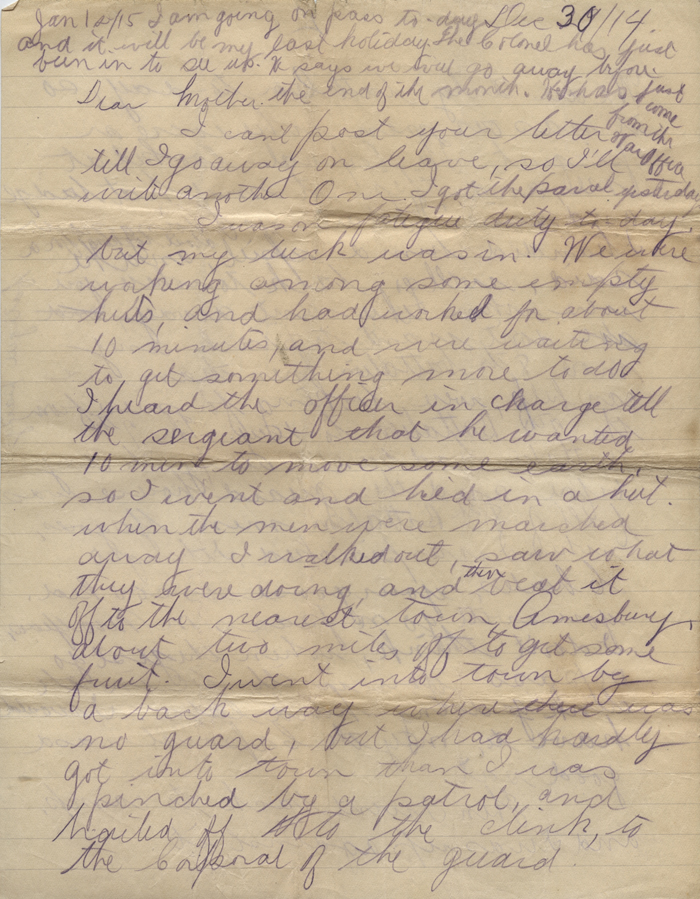 Jan 1st/15 I am going on pass to-day Dec 30/14
and it will be my last holiday. The Colonel has just
been in to see us. He says we will go away before
the end of the month. He has just
come
from the
War Office
Dear Mother.
I can't post your letter
till I go away on leave, so I'll
write another One. I got the parcel yesterday
I was on fatigue duty to-day,
but my luck was in. We were
working among some empty
huts, and had worked for about
10 minutes, and were waiting
to get something more to do
I heard the officer in charge tell
the sergeant that he wanted
10 men to move some earth,
so I went and hied in a hut.
when the men were marched
away I walked out, saw what
they were doing, and then beat it
off to the nearest town, Amesbury,
about two miles off to get some
fruit. I went into town by
a back way where there was
no guard, but I had hardly
got into town than I was
pinched by a patrol, and
hailed off to the clink, to
the Corporal of the guard.